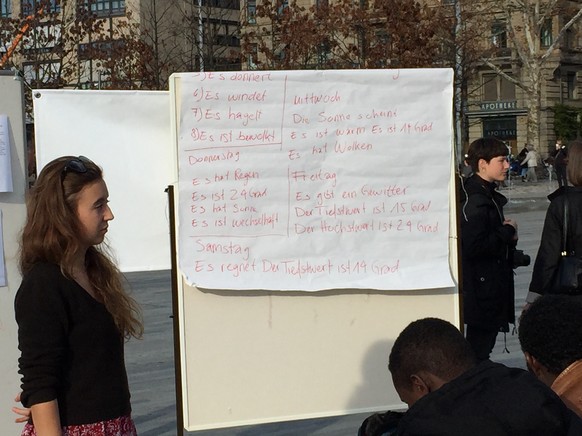 5) Es donnert
6) Es windet
7) Es hagelt
8) Es ist bewölkt
Mittwoch
Die Sonne scheint
Es ist warm Es ist 19 Grad
Es hat Wolken
Donnerstag
Es hat Regen
Es ist 24 Grad
Es hat Sonne
Es ist wechselhaft
Freitag
Es gibt ein Gewitter
Der Tiefstwert ist 15 Grad
Der Höchstwert ist 29 Grad
Samstag
Es regnet Der Tiefstwert ist 19 Grad
APOTHEKE